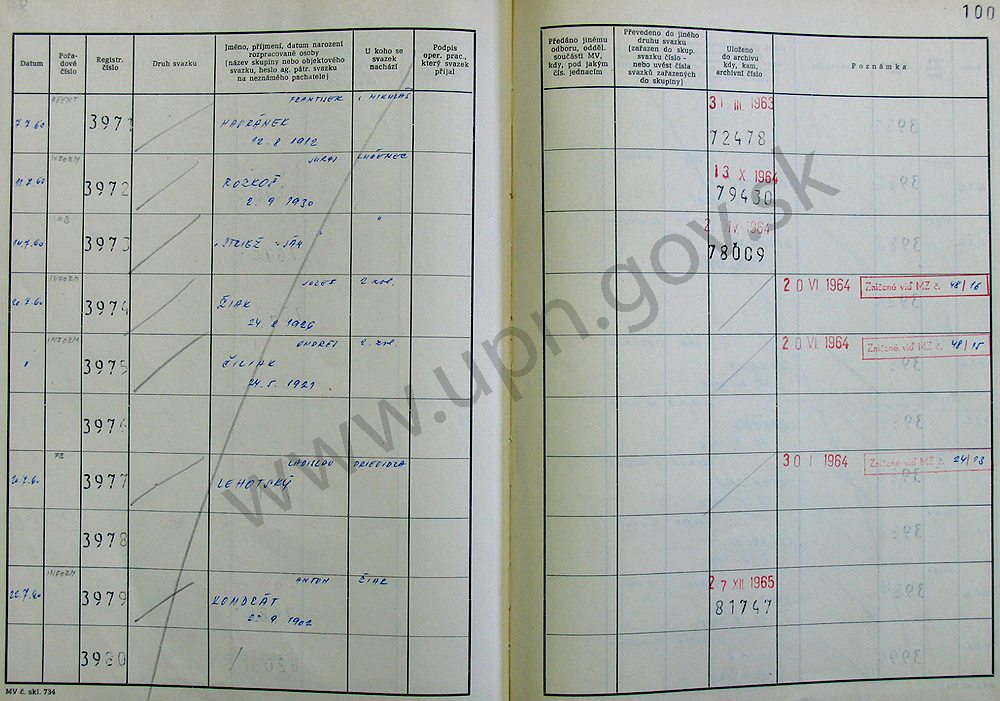 100
Datum
Pořa-
dové
číslo
Registr.
číslo
Druh svazku
Jméno, příjmení, datum narození
rozpracované osoby
(název skupiny nebo objektového
svazku, heslo ag. pátr. svazku
na neznámého pachatele)
U koho se
svazek
nachází
Podpis
oper. prac.,
který svazek
přijal
Předáno jinému
odboru, odděl.
součásti MV,
kdy, pod jakým
čís. jednacím
Převedeno do jiného
druhu svazku
(zařazen do skup.
svazku číslo -
nebo uvést čísla
svazků zařazených
do skupiny)
Uloženo
do archivu
kdy, kam,
archivní číslo
Poznámka
AGENT
FRANTIŠEK
L. MIKULÁŠ
31 III. 1963
7.7.60
3971
HAVRÁNEK
12.8 1912
72478
INFORM
JURAJ
LUČENEC
13 X. 1964
11.7.60
3972
2.9 1930
79430
"
2 IV. 1964
14.7.60
3973
JÁN
78009
INFORM
JOZEF
20 VI 1964
Zničené viď MZ č. 48/16
3974
ŽIAK
INFORM
ONDREJ
20 VI. 1964
Zničené viď MZ č. 48/15
"
3975
ČILIAK
24.5. 1921
3976
LADISLAV
PRIEVIDZA
30 I 1964
Zničené viď MZ č. 24/23
3977
LEHOTSKÝ
3978
INFORM
ANTON
ŽIAR
27 XII 1965
22.7.60
3979
KONDRÁT
81747
3980
MV č. skl. 734
www.upn.gov.sk